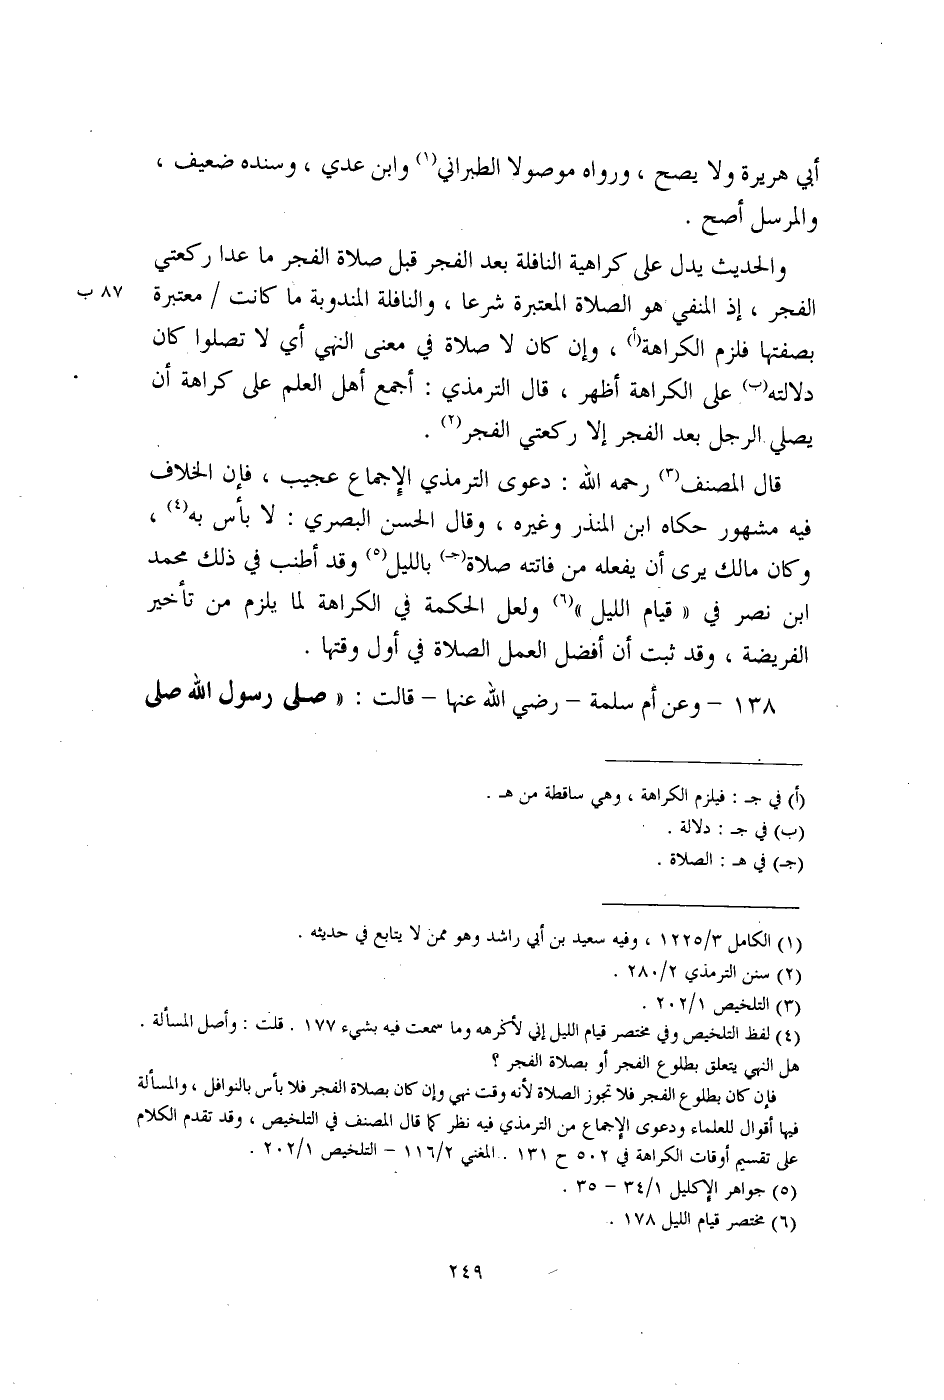 أبي هريرة ولا يصح ، ورواه موصولا الطبراني(١) وابن عدي ، وسنده ضعيف ،
والمرسل أصح .
والحديث يدل على كراهية النافلة بعد الفجر قبل صلاة الفجر ما عدا ركعتي
الفجر ، إذ المنفي هو الصلاة المعتبرة شرعا ، والنافلة المندوبة ما كانت / معتبرة ٨٧ ب
بصفتها فلزم الكراهة(أ) ، وإن كان لا صلاة في معنى النهي أي لا تصلوا كان
دلالته(ب) على الكراهة أظهر ، قال الترمذي : أجمع أهل العلم على كراهة أن
يصلي الرجل بعد الفجر إلا ركعتي الفجر(٢) .
قال المصنف(٣) رحمه الله : دعوى الترمذي الإجماع عجيب ، فإن الخلاف
فيه مشهور حكاه ابن المنذر وغيره ، وقال الحسن البصري : لا بأس به(٤) ،
وكان مالك يرى أن يفعله من فاتته صلاة(جـ) بالليل(٥) وقد أطنب في ذلك محمد
ابن نصر في « قيام الليل »(٦) ولعل الحكمة في الكراهة لما يلزم من تأخير
الفريضة ، وقد ثبت أن أفضل العمل الصلاة في أول وقتها .
١٣٨ – وعن أم سلمة – رضي الله عنها – قالت : « صلى رسول الله صلى
(أ) في جـ : فيلزم الكراهة ، وهي ساقطة من هـ .
(ب) في جـ : دلالة .
(جـ) في هـ : الصلاة .
(١) الكامل ١٢٢٥/٣ ، وفيه سعيد بن أبي راشد وهو ممن لا يتابع في حديثه .
(٢) سنن الترمذي ٢٨٠/٢ .
(٣) التلخيص ٢٠٢/١ .
(٤) لفظ التلخيص وفي مختصر قيام الليل إني لأكرهه وما سمعت فيه بشيء ١٧٧ . قلت : وأصل المسألة .
هل النهي يتعلق بطلوع الفجر أو بصلاة الفجر ؟
فإن كان بطلوع الفجر فلا تجوز الصلاة لأنه وقت نهي وإن كان بصلاة الفجر فلا بأس بالنوافل ، والمسألة
فيها أقوال للعلماء ودعوى الإجماع من الترمذي فيه نظر كما قال المصنف في التلخيص ، وقد تقدم الكلام
على تقسيم أوقات الكراهة في ٥٠٢ ح ١٣١ . المغني ١١٦/٢ – التلخيص ٢٠٢/١ .
(٥) جواهر الإكليل ٣٤/١ – ٣٥ .
(٦) مختصر قيام الليل ١٧٨ .
٢٤٩